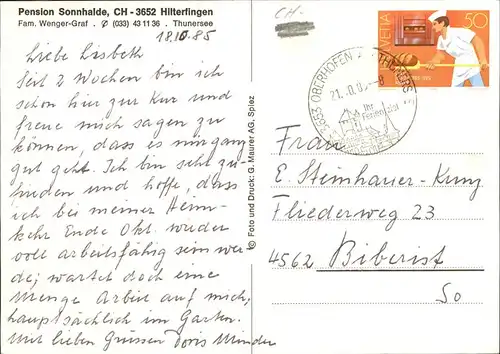 Pension Sonnhalde, CH - 3652 Hilterfingen
Fam. Wenger-Graf . ✆ (033) 43 11 36 . Thunersee
18.10.85
Liebe Lisbeth
Seit 2 Wochen bin ich
schon hier zur Kur und
freue mich sagen zu
können, dass es mir ganz
gut geht. Ich bin sehr zu-
frieden und hoffe, dass
ich bei meiner Heim-
kehr Ende Okt. wieder
voll arbeitsfähig sein wer-
de; wartet doch eine
Menge Arbeit auf mich,
hauptsächlich im Garten.
Mit lieben Grüssen Doris Minder
© Foto und Druck: G. Maurer AG, Spiez
CH-
HELVETIA
50
3653 OBERHOFEN
Ihr
Ferienziel
Frau
E. Steinhauer-Kung
Fliederweg 23
4562 Biberist
So